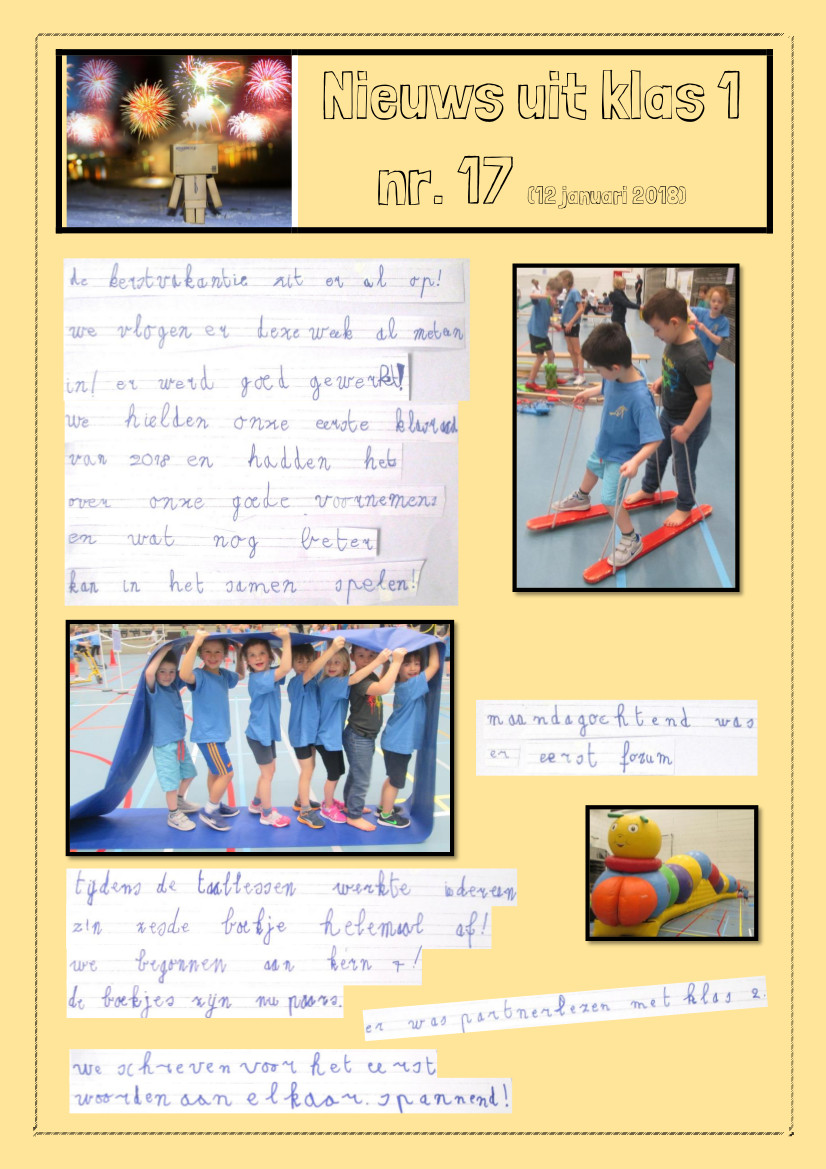 Nieuws uit klas 1
nr. 17 (12 januari 2018)
de kerstvakantie zit er al op!
we vlogen er deze week al meteen
in! er werd goed gewerkt!
we hielden onze eerste klasraad
van 2018 en hadden het
over onze goede voornemens
en wat nog beter
kan in het samen spelen!
maandagochtend was
er eerst forum
tijdens de taallessen werkte iedereen
zijn zesde boekje helemaal af!
we begonnen aan kern 7!
de boekjes zijn nu paars.
er was partnerlezen met klas 2.
we schreven voor het eerst
woorden aan elkaar. spannend!